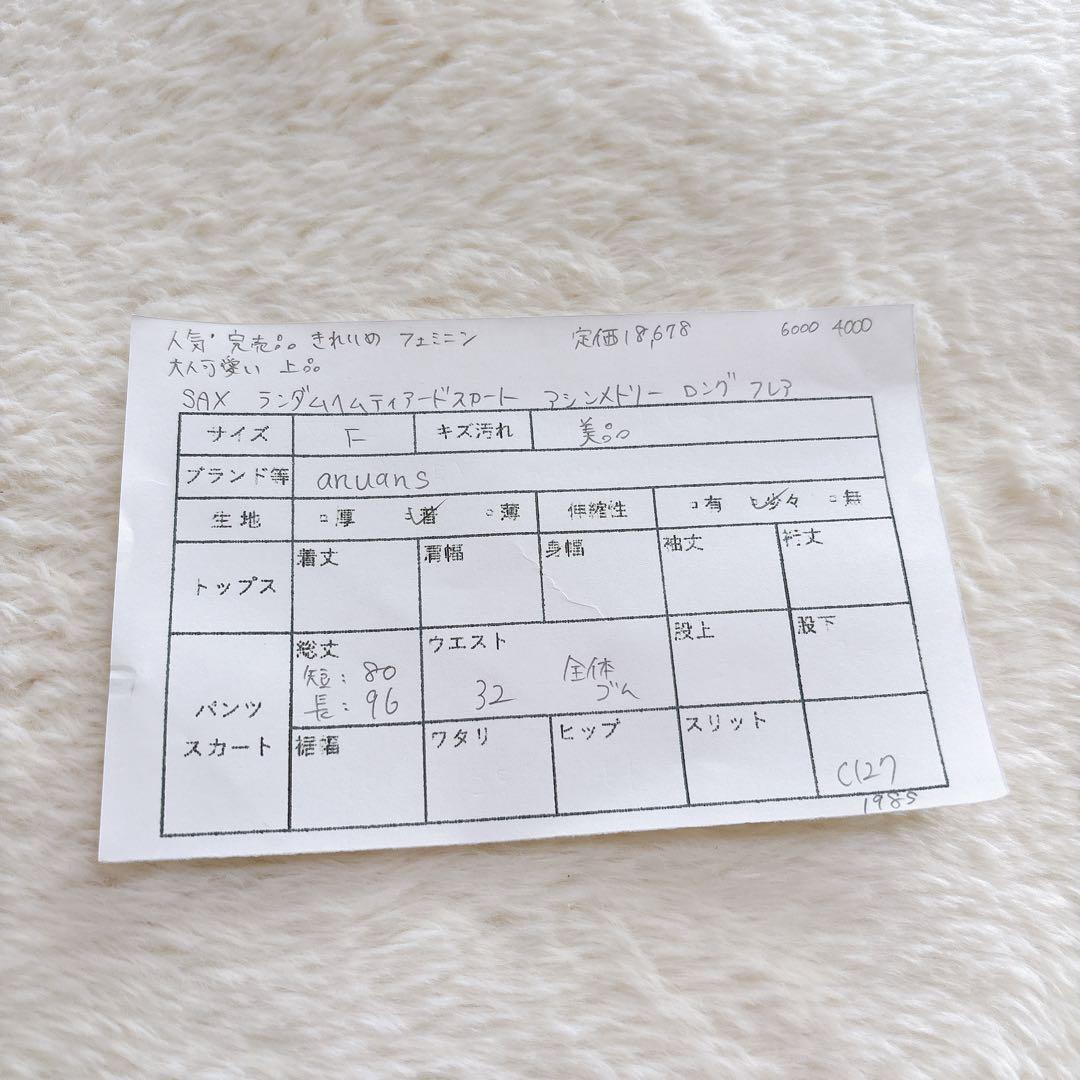 人気 完売品 きれいめ フェミニン 定価18,678 6000 4000
大人可愛い 上品
SAX ランダムヘムティアードスカート アシンメトリー ロング フレア
サイズ F キズ汚れ 美品
ブランド等 anuans
生地 □厚 ☑普 □薄 伸縮性 □有 ☑少々 □無
トップス 着丈 肩幅 身幅 袖丈 裄丈
パンツ スカート 総丈 短:80 長:96 ウエスト 32 全体ゴム 股上 股下
裾幅 ワタリ ヒップ スリット C127
1985